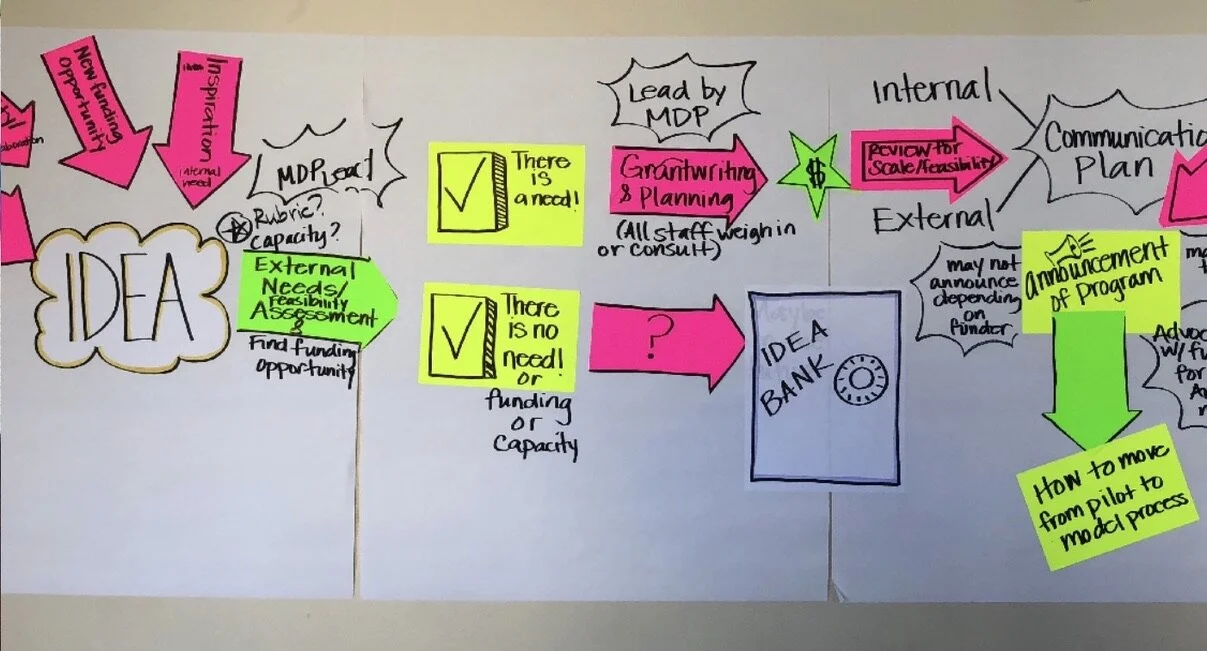 New funding
Opportunity
Inspiration
internal
need
IDEA
MDP Lead
Rubric?
capacity?
External
Needs/
Feasibility
Assessment
&
Find funding
opportunity
There
is
a need!
There
is no
need!
or
funding
or
capacity
Lead by
MDP
Grantwriting
& Planning
(All staff weigh in
or consult)
?
IDEA
BANK
$
Review for
Scale/feasibility
Internal
External
Communicatio
Plan
may not
announce
depending
on
funder
announcement
of Program
How to move
from pilot to
model process
Advoc
w/ fu
for